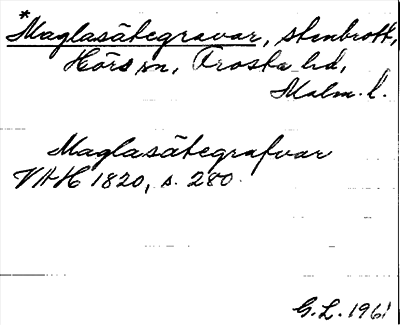 *Maglasätegravar, stenbrott,
Hörs sn, Frosta hd,
Malm. l.
Maglasätegrafvar
VAH 1820, s. 280.
G.L. 1961